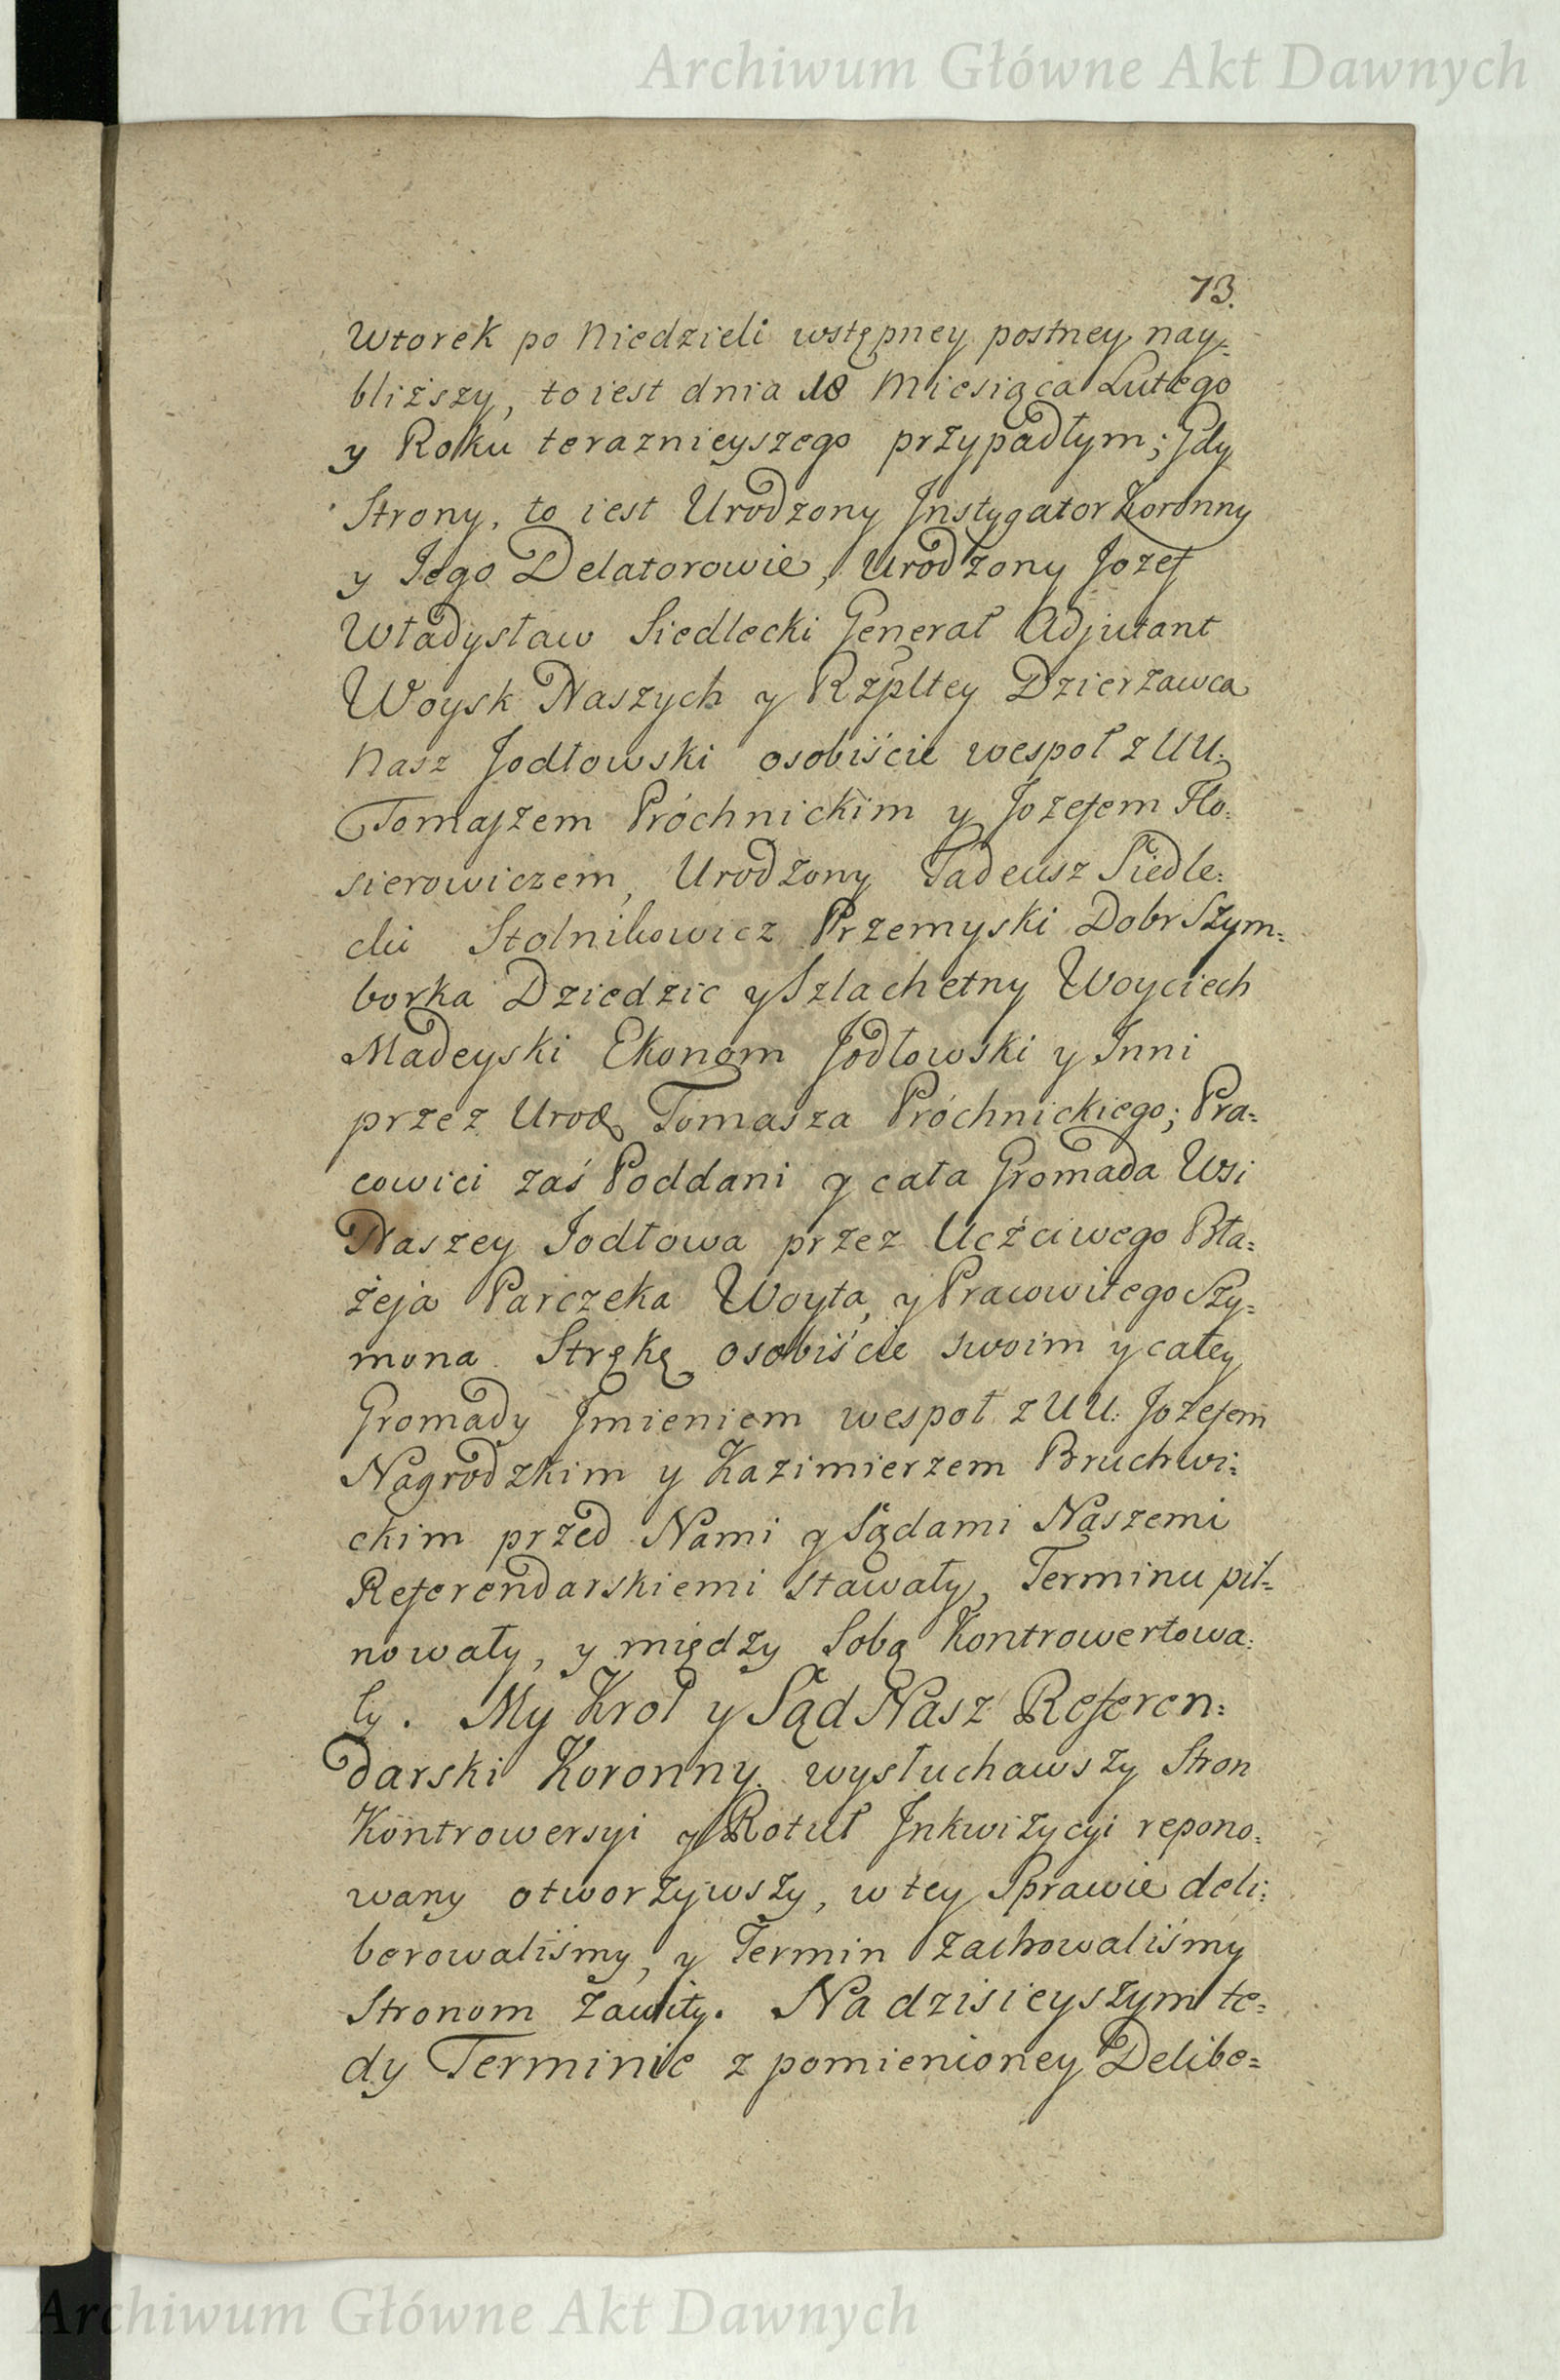 Archiwum Główne Akt Dawnych
73.
Wtorek po Niedzieli wstępney postney nay=
bliższy, to iest dnia 18 Miesiąca Lutego
y Roku teraznieyszego przypadłym; Gdy
Strony, to iest Urodzony Jnstygator Koronny
y Jego Delatorowie, Urodzony Jozef
Władysław Siedlecki Generał Adjutant
Woysk Naszych y Rzpltey Dzierżawca
Nasz Jodłowski osobiście wespoł z UU:
Tomaszem Próchnickim y Jozefem Flo:
sierowiczem, Urodzony Tadeusz Siedle:
cki Stolnikowicz Przemyski Dobr Szym=
borka Dziedzic y Szlachetny Woyciech
Madeyski Ekonom Jodłowski y Jnni
przez Urod Tomasza Próchnickiego; Pra=
cowici zaś Poddani y cała Gromada Wsi
Naszey Jodłowa przez Uczciwego Bła=
żeja Parczeka Woyta, y Pracowitego Szy=
mona Strękę osobiście swoim y całey
Gromady Jmieniem wespoł z UU: Jozefem
Nagrodzkim y Kazimierzem Bruchwi=
ckim przed Nami y Sądami Naszemi
Referendarskiemi stawały, Terminu pil=
nowały, y między Sobą Kontrowertowa:
ły. My Krol y Sąd Nasz Referen=
darski Koronny wysłuchawszy Stron
Kontrowersyi y Rotuł Jnkwizycyi repono:
wany otworzywszy, w tey Sprawie deli:
berowaliśmy, y Termin zachowaliśmy
Stronom zawity. Na dzisieyszym te=
dy Terminie z pomienioney Delibe=
Archiwum Główne Akt Dawnych